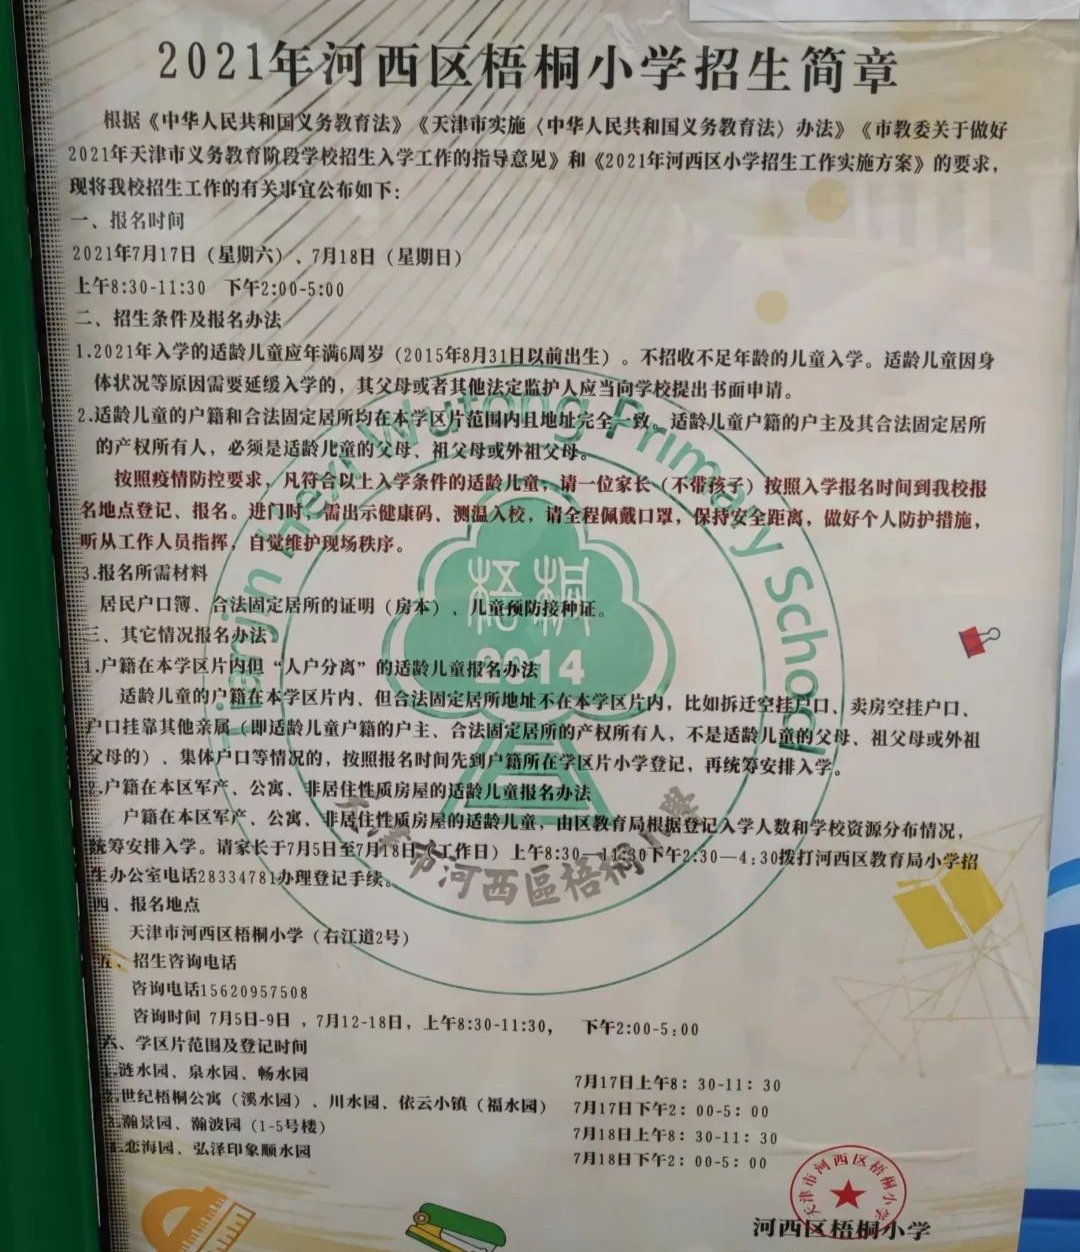 2021年河西区梧桐小学招生简章
根据《中华人民共和国义务教育法》《天津市实施〈中华人民共和国义务教育法〉办法》《市教委关于做好
2021年天津市义务教育阶段学校招生入学工作的指导意见》和《2021年河西区小学招生工作实施方案》的要求，
现将我校招生工作的有关事宜公布如下：
一、报名时间
2021年7月17日（星期六）、7月18日（星期日）
上午8:30-11:30 下午2:00-5:00
二、招生条件及报名办法
1.2021年入学的适龄儿童应年满6周岁（2015年8月31日以前出生）。不招收不足年龄的儿童入学。适龄儿童因身
体状况等原因需要延缓入学的，其父母或者其他法定监护人应当向学校提出书面申请。
2.适龄儿童的户籍和合法固定居所均在本学区片范围内且地址完全一致。适龄儿童户籍的户主及其合法固定居所
的产权所有人，必须是适龄儿童的父母、祖父母或外祖父母。
按照疫情防控要求，凡符合以上入学条件的适龄儿童，请一位家长（不带孩子）按照入学报名时间到我校报
名地点登记、报名。进门时，需出示健康码、测温入校，请全程佩戴口罩，保持安全距离，做好个人防护措施，
听从工作人员指挥，自觉维护现场秩序。
3.报名所需材料
居民户口簿、合法固定居所的证明（房本）、儿童预防接种证。
三、其它情况报名办法
1.户籍在本学区片内但“人户分离”的适龄儿童报名办法
适龄儿童的户籍在本学区片内、但合法固定居所地址不在本学区片内，比如拆迁空挂户口、卖房空挂户口、
户口挂靠其他亲属（即适龄儿童户籍的户主、合法固定居所的产权所有人，不是适龄儿童的父母、祖父母或外祖
父母的）、集体户口等情况的，按照报名时间先到户籍所在学区片小学登记，再统筹安排入学。
2.户籍在本区军产、公寓、非居住性质房屋的适龄儿童报名办法
户籍在本区军产、公寓、非居住性质房屋的适龄儿童，由区教育局根据登记入学人数和学校资源分布情况，
统筹安排入学。请家长于7月5日至7月18日（工作日）上午8:30—11:30下午2:30—4:30拨打河西区教育局小学招
生办公室电话28334781办理登记手续。
四、报名地点
天津市河西区梧桐小学（右江道2号）
五、招生咨询电话
咨询电话15620957508
咨询时间 7月5日-9日 ，7月12-18日，上午8:30-11:30， 下午2:00-5:00
六、学区片范围及登记时间
1.涟水园、泉水园、畅水园 7月17日上午8：30-11：30
2.世纪梧桐公寓（溪水园）、川水园、依云小镇（福水园） 7月17日下午2：00-5：00
3.瀚景园、瀚波园（1-5号楼） 7月18日上午8：30-11：30
4.恋海园、弘泽印象顺水园 7月18日下午2：00-5：00
河西区梧桐小学
天津市河西区梧桐小学
Tianjin Hexi Wutong Primary School
梧桐
2014
天津市河西區梧桐小學